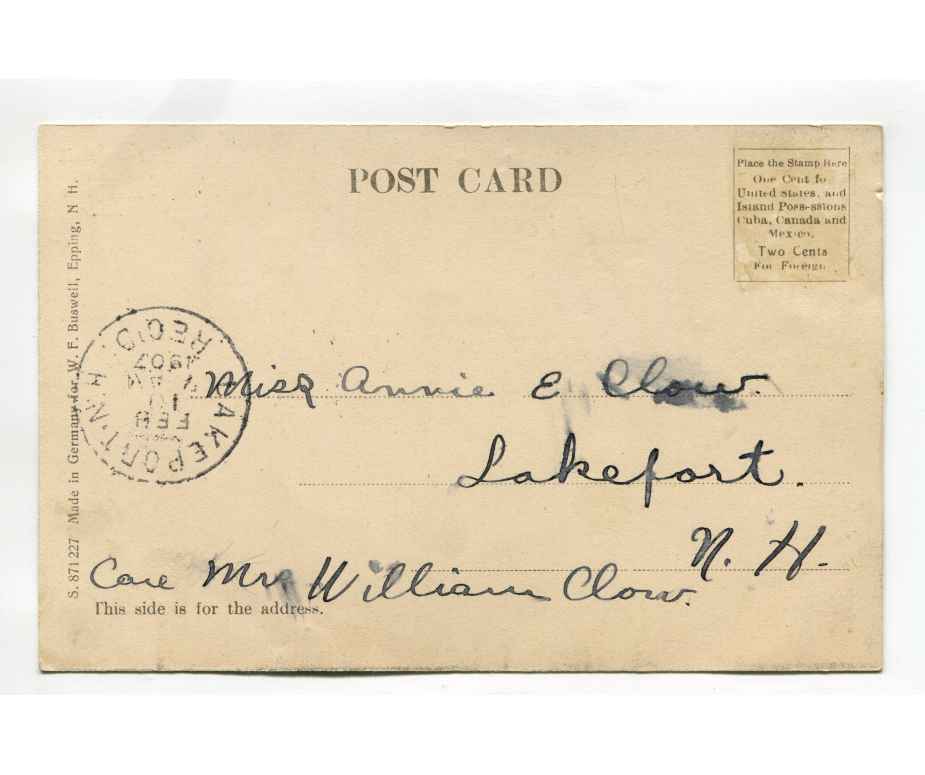 POST CARD
Place the Stamp Here
One Cent fo
United States, and
Island Poss-ssions
Cuba, Canada and
Mexico,
Two Cents
For Foreign.
S. 871227 Made in Germany for W. F. Buswell, Epping, N H.
LAKEPORT. N. H.
REC'D.
FEB
10
AM
1907
Miss Annie E Clow.
Lakeport.
N. H.
Care Mr. William Clow.
This side is for the address.